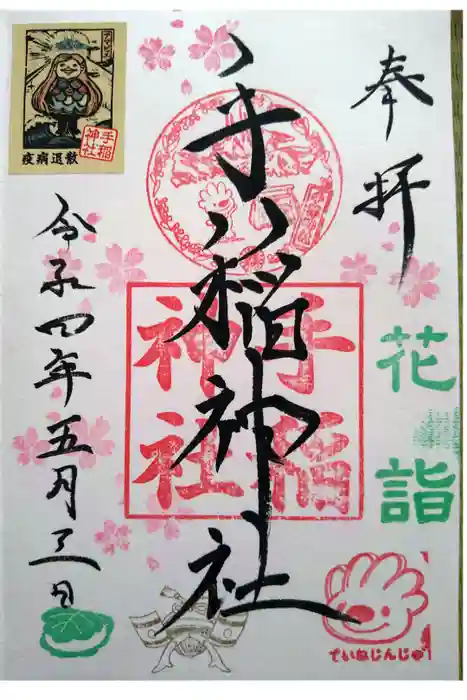 奉拝
花詣
手稲神社
手稲
神社
令和四年五月三日
アマビエ
手稲
神社
疫病退散
ていねじんじゃ